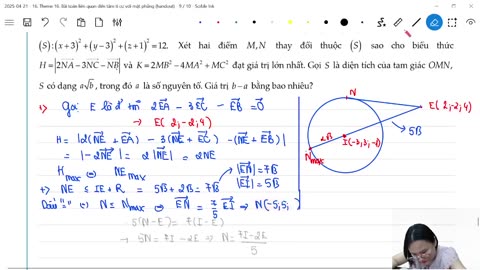 2025-04-21 - 16. Theme-16. Bài toán liên quan đến tâm tỉ cự với mặt phẳng (handout) - 9 / 10 - Scribble Ink
(S):(x+3)²+(y−3)²+(z+1)²=12. Xét hai điểm M,N thay đổi thuộc (S) sao cho biểu thức
H=|2NA−3NC−NB| và K=2MB²−4MA²+MC² đạt giá trị lớn nhất. Gọi S là diện tích của tam giác OMN,
S có dạng a√b, trong đó a là số nguyên tố. Giá trị b−a bằng bao nhiêu?
1) Gọi E là đ' t/mãn 2EA − 3EC − EB = 0
→ E(2;-2;4)
H = |2(NE + EA) − 3(NE + EC) − (NE + EB)|
= |−2NE| = 2|NE| = 2NE
H max ⇔ NE max
|EN| = 7√3
|EI| = 5√3
+) NE ≤ IE + R = 5√3 + 2√3 = 7√3
Dấu "=" ⇔ N ≡ N max ⇔ EN = 7/5 EI → N(-5;5;
5(N−E) = 7(I−E)
→ 5N = 7I − 2E ⇒ N = 7I−2E / 5
N
E(2;-2;4)
5√3
2√3
I(-3;3;-1)
N max